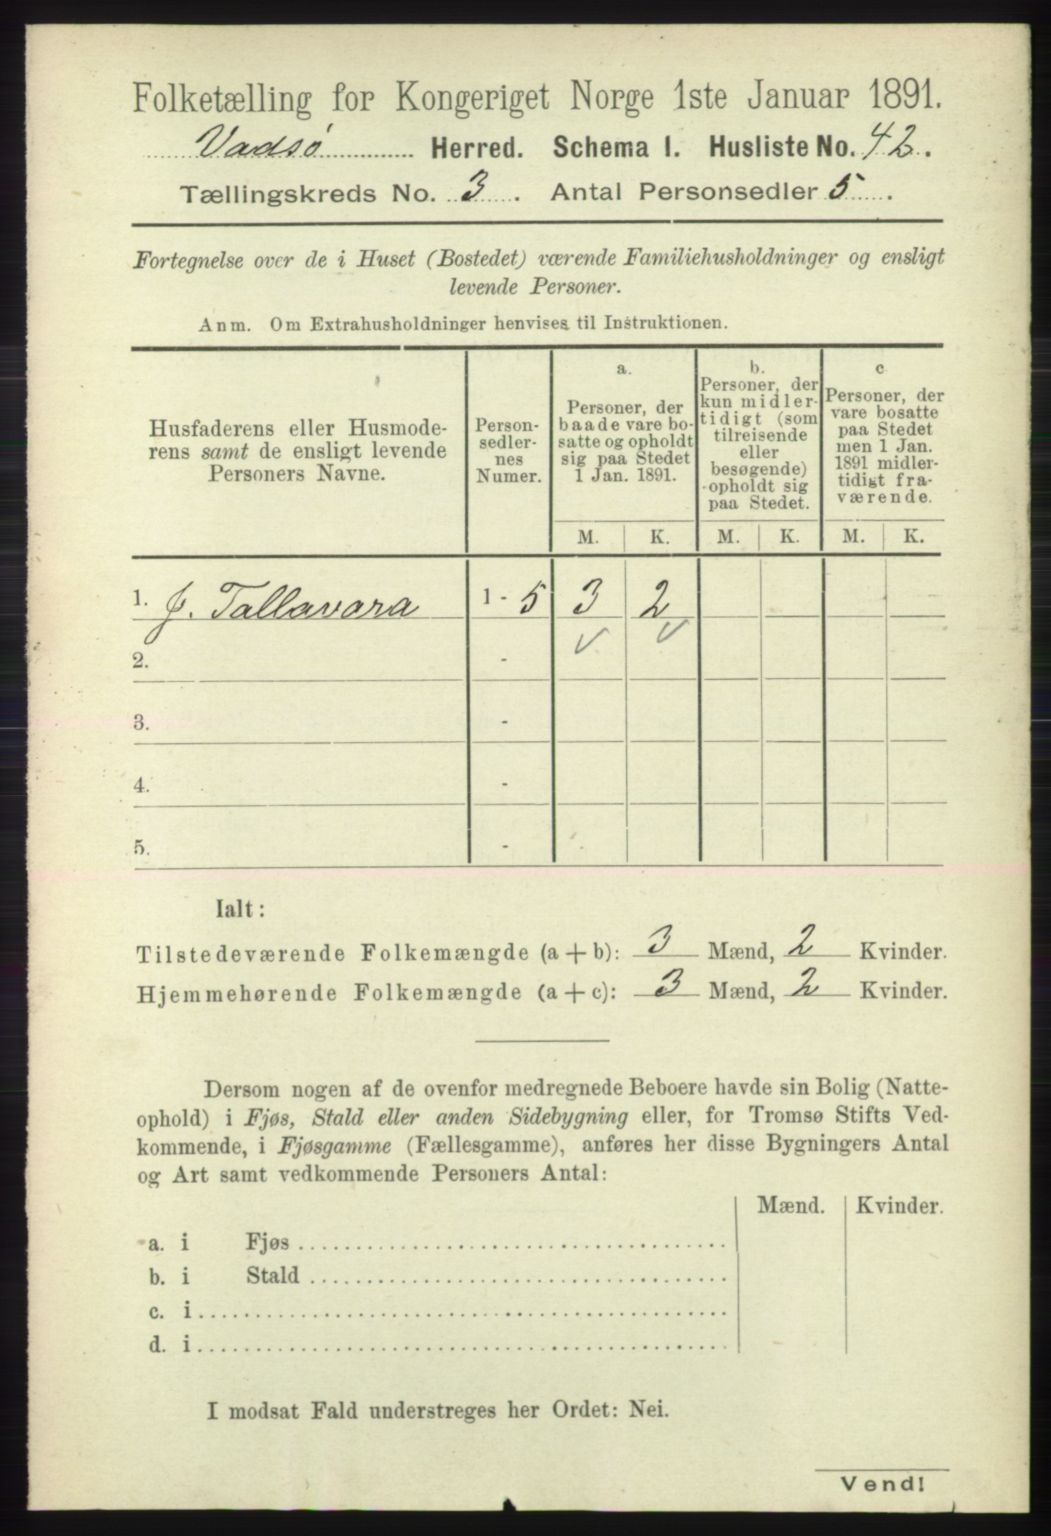 Folketælling for Kongeriget Norge 1ste Januar 1891.
Vadsø Herred. Schema I. Husliste No. 42.
Tællingskreds No. 3. Antal Personsedler 5.
Fortegnelse over de i Huset (Bostedet) værende Familiehusholdninger og ensligt
levende Personer.
Anm. Om Extrahusholdninger henvises til Instruktionen.
Husfaderens eller Husmode-
rens samt de ensligt levende
Personers Navne.
Person-
sedler-
nes
Numer.
a.
Personer, der
baade vare bo-
satte og opholdt
sig paa Stedet
1 Jan. 1891.
b.
Personer, der
kun midler-
tidigt (som
tilreisende
eller
besøgende)
opholdt sig
paa Stedet.
c
Personer, der
vare bosatte
paa Stedet
men 1 Jan.
1891 midler-
tidigt fra-
værende.
M. K. M. K. M. K.
1. J. Tallavara 1 - 5 3 2
2. -
3. -
4. -
5. -
Ialt:
Tilstedeværende Folkemængde (a + b): 3 Mænd, 2 Kvinder.
Hjemmehørende Folkemængde (a + c): 3 Mænd, 2 Kvinder.
Dersom nogen af de ovenfor medregnede Beboere havde sin Bolig (Natte-
ophold) i Fjøs, Stald eller anden Sidebygning eller, for Tromsø Stifts Ved-
kommende, i Fjøsgamme (Fællesgamme), anføres her disse Bygningers Antal
og Art samt vedkommende Personers Antal:
Mænd. Kvinder.
a. i Fjøs
b. i Stald
c. i
d. i
I modsat Fald understreges her Ordet: Nei.
Vend!